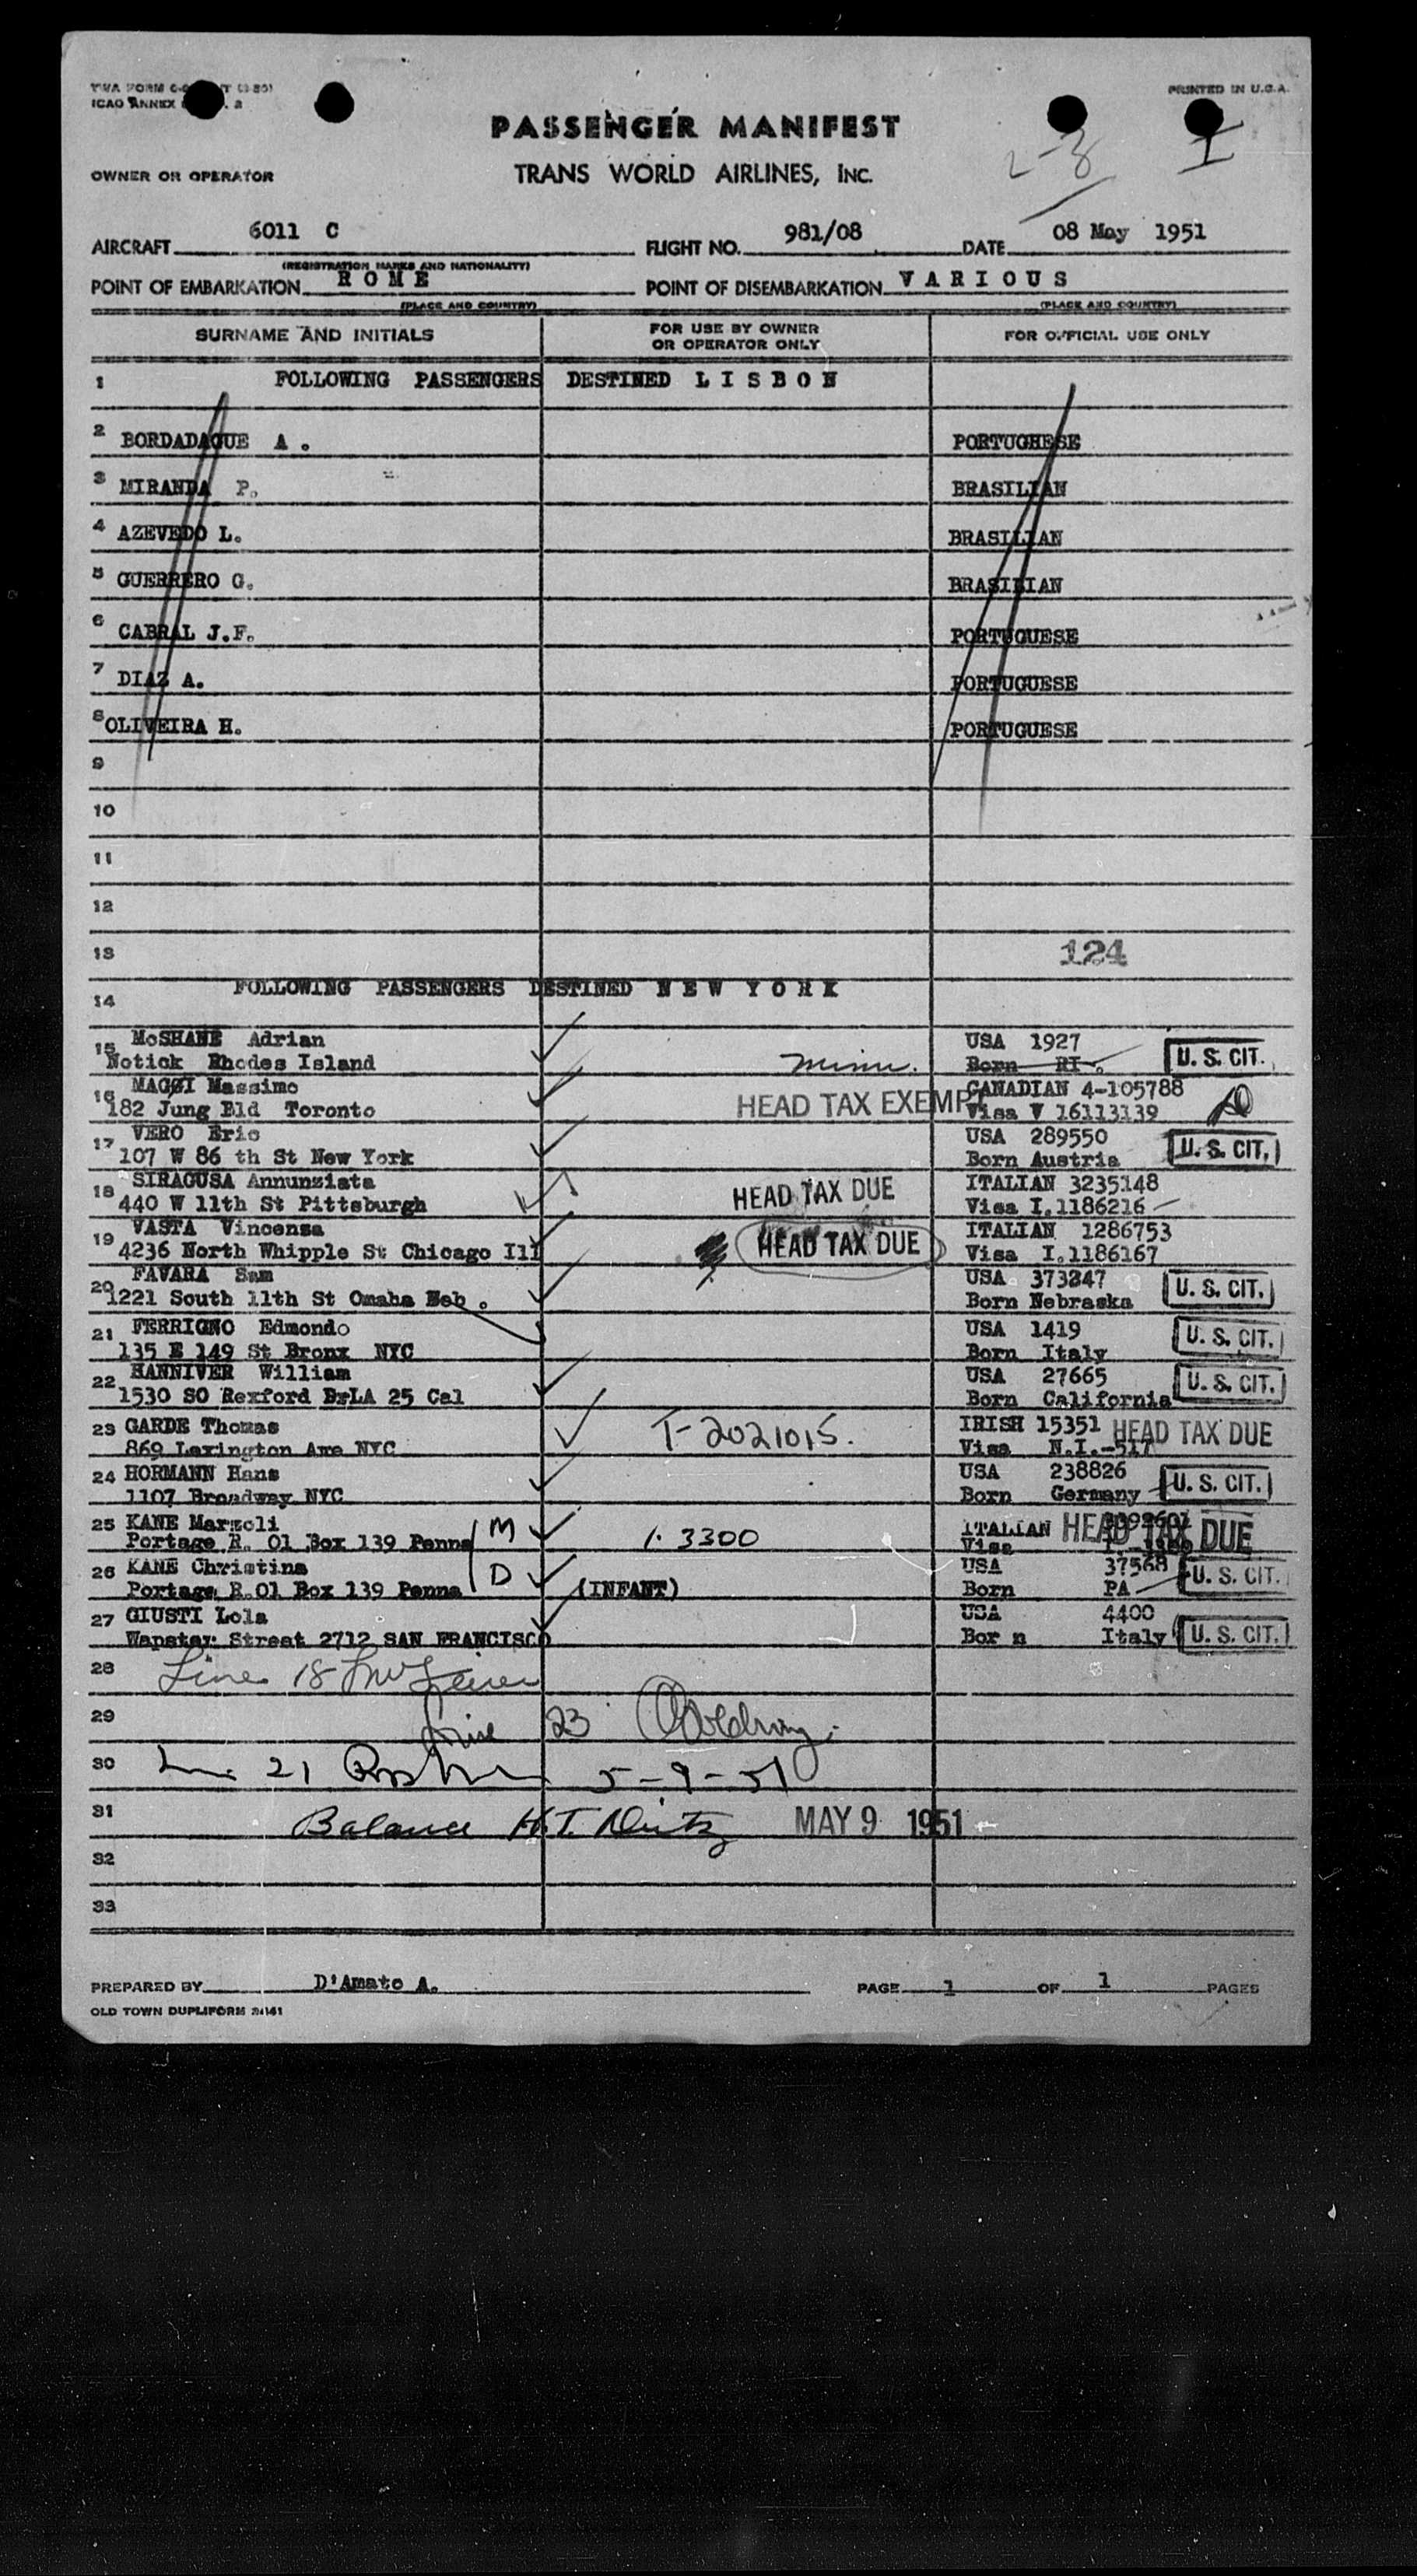 PRINTED IN U.S.A.
ICAO ANNEX
PASSENGER MANIFEST
OWNER OR OPERATOR
TRANS WORLD AIRLINES, INC.
2-8
AIRCRAFT 6011 C FLIGHT NO. 981/08 DATE 08 May 1951
(REGISTRATION MARKS AND NATIONALITY)
POINT OF EMBARKATION R O M E POINT OF DISEMBARKATION V A R I O U S
(PLACE AND COUNTRY) (PLACE AND COUNTRY)
SURNAME AND INITIALS FOR USE BY OWNER OR OPERATOR ONLY FOR OFFICIAL USE ONLY
1 FOLLOWING PASSENGERS DESTINED L I S B O N
2 BORDADAGUE A . PORTUGHESE
3 MIRANDA P. BRASILIAN
4 AZEVEDO L. BRASILIAN
5 GUERRERO G. BRASILIAN
6 CABRAL J.F. PORTUGUESE
7 DIAZ A. PORTUGUESE
8 OLIVEIRA H. PORTUGUESE
9
10
11
12
13 124
14 FOLLOWING PASSENGERS DESTINED N E W Y O R K
15 McSHANE Adrian USA 1927
Notick Rhodes Island Born RI. U. S. CIT.
16 MAGGI Massimo CANADIAN 4-105788
182 Jung Bld Toronto HEAD TAX EXEMPT Visa V 16113139
17 VERO Eric USA 289550
107 W 86 th St New York Born Austria U. S. CIT.
18 SIRAGUSA Annunziata ITALIAN 3235148
440 W 11th St Pittsburgh HEAD TAX DUE Visa I.1186216
19 VASTA Vincenza ITALIAN 1286753
4236 North Whipple St Chicago Ill HEAD TAX DUE Visa I.1186167
20 FAVARA Sam USA 373247
1221 South 11th St Omaha Neb . Born Nebraska U. S. CIT.
21 FERRIGNO Edmondo USA 1419
135 E 149 St Bronx NYC Born Italy U. S. CIT.
22 HANNIVER William USA 27665
1530 SO Rexford DrLA 25 Cal Born California U. S. CIT.
23 GARDE Thomas T-2021015. IRISH 15351 HEAD TAX DUE
869 Lexington Ave NYC Visa N.I.-517
24 HORMANN Hans USA 238826
1107 Broadway NYC Born Germany U. S. CIT.
25 KANE Marzoli M 1.3300 ITALIAN HEAD TAX DUE
Portage R. 01 Box 139 Penna Visa
26 KANE Christina D USA 37568
Portage R.01 Box 139 Penna (INFANT) Born PA U. S. CIT.
27 GIUSTI Lola USA 4400
Wapster Street 2712 SAN FRANCISCO Bor n Italy U. S. CIT.
28 Line 18
29 Line 23
30 21 5-9-51
31 Balance H.T. MAY 9 1951
32
33
PREPARED BY D'Amato A. PAGE 1 OF 1 PAGES
OLD TOWN DUPLIFORM